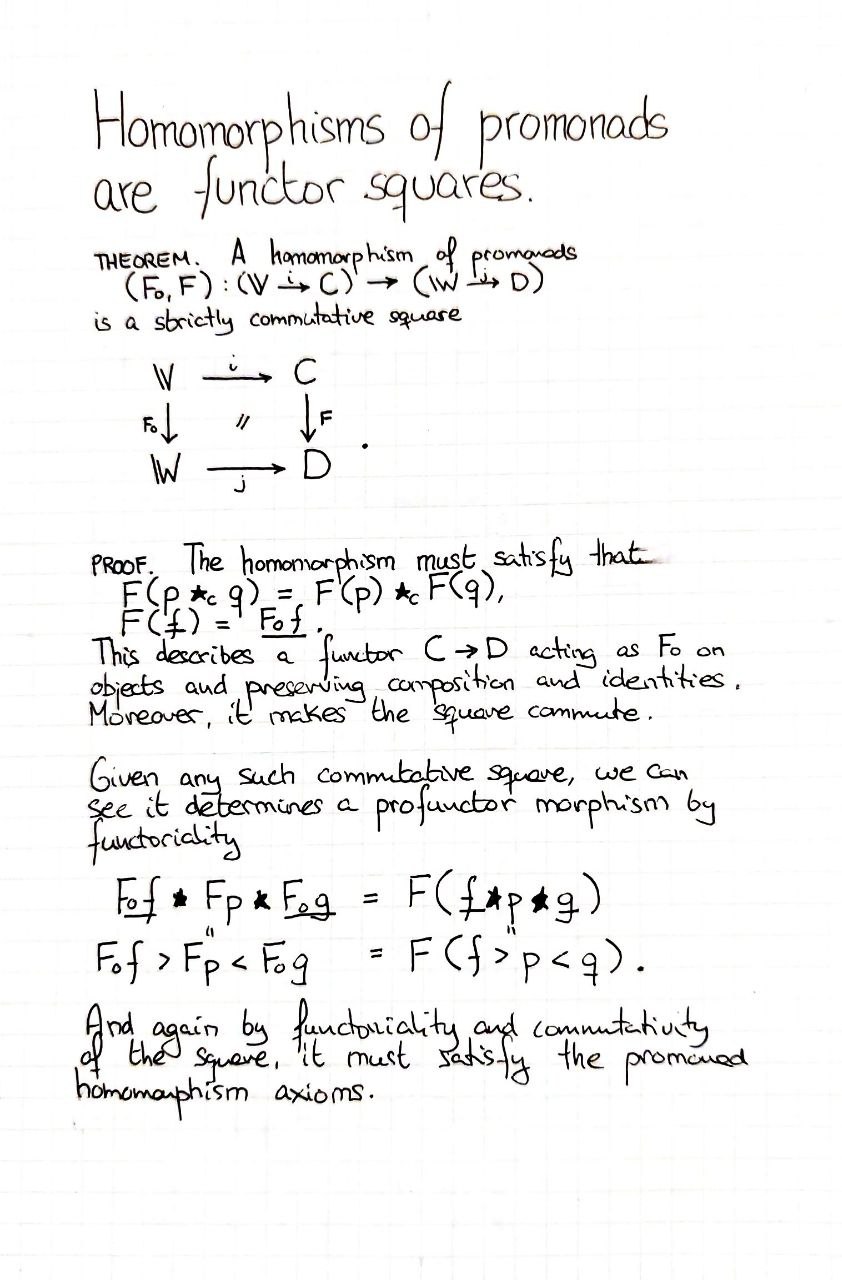 Homomorphisms of promonads
are functor squares.
THEOREM. A homomorphism of promonads
(F₀, F) : (𝕍 →ⁱ C) → (𝕎 →ʲ D)
is a strictly commutative square
𝕍 →ⁱ C
F₀↓ // ↓F
𝕎 →ⱼ D .
PROOF. The homomorphism must satisfy that
F(p ★c q) = F(p) ★c F(q),
F(f̲) = F̲₀̲f̲.
This describes a functor C → D acting as F₀ on
objects and preserving composition and identities.
Moreover, it makes the square commute.
Given any such commutative square, we can
see it determines a profunctor morphism by
functoriality
F̲₀̲f̲ ★ Fp ★ F̲₀̲g̲ = F(f̲ ★ p ★ g̲)
" "
F₀f > Fp < F₀g = F(f > p < g).
And again by functoriality and commutativity
of the square, it must satisfy the promonad
homomorphism axioms.